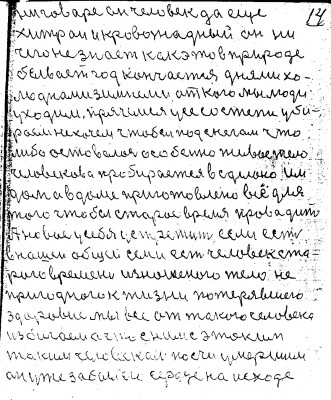 14
приговаре он человек да еще
хитрой и кровожадный он ни
чего не знает как это в природе
бывает год кончается днями хо-
лодными зимними от кого мы люди
уходим. прячемся усе со степи уби-
раем нехочем чтобы под снегом что
либо оставалося особенно живое тело
человекова пробирается в сделоно им
дом а в доме приготовлено всё для
того чтобы старое время проводить
А новое у себя устретить если есть
в нашей общей семи ест человек ста-
рого времени изношеного тело не
пригодного к жизни потерявшего
здоровие мы все от такого человека
избигаем а что с ними с этоким
таким человекам посчи умершим
он уже забытый сердце на исходе